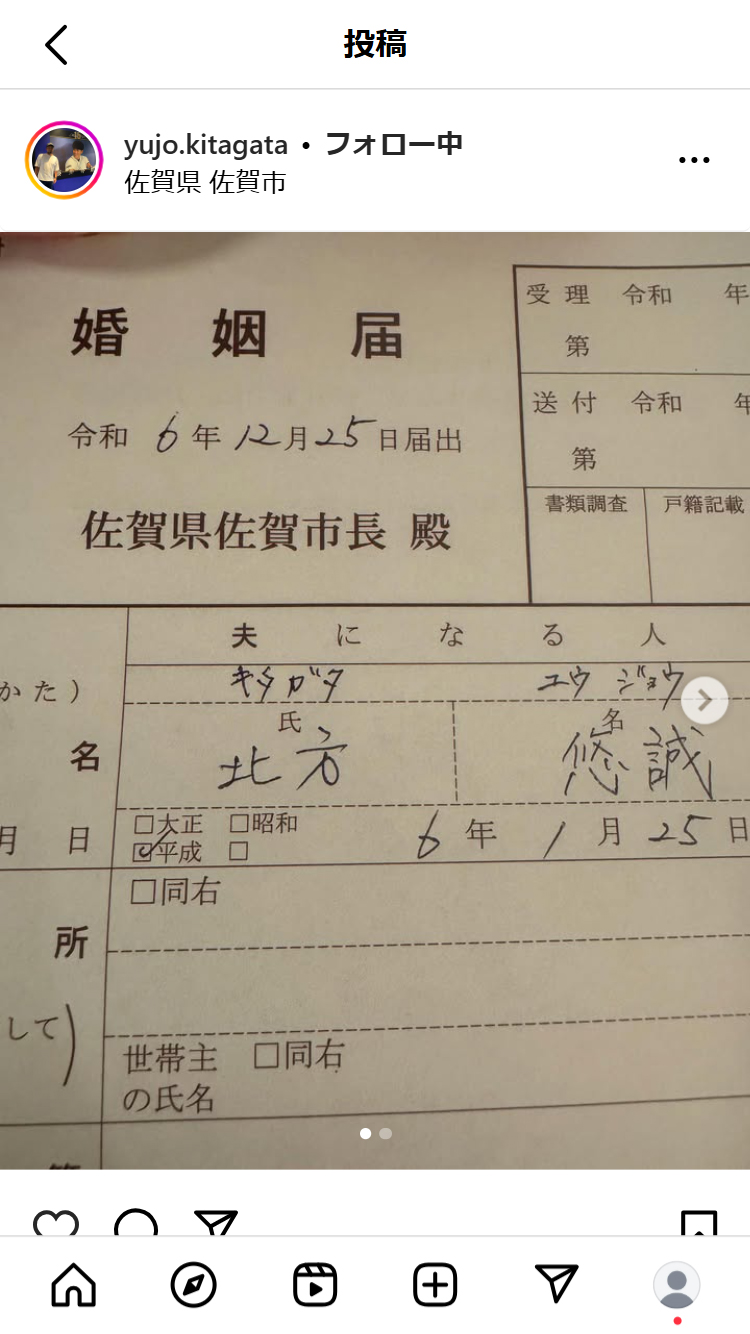 投稿
yujo.kitagata • フォロー中
佐賀県 佐賀市
婚姻届
受理 令和 年
第
送付 令和 年
第
書類調査 戸籍記載
令和 6年12月25日届出
佐賀県佐賀市長 殿
夫になる人
かた）
キタガタ ユウジョウ
氏 名
名
北方 悠誠
月 日
□大正 □昭和
☑平成 □
6年1月25日
□同右
所
して）
世帯主 □同右
の氏名